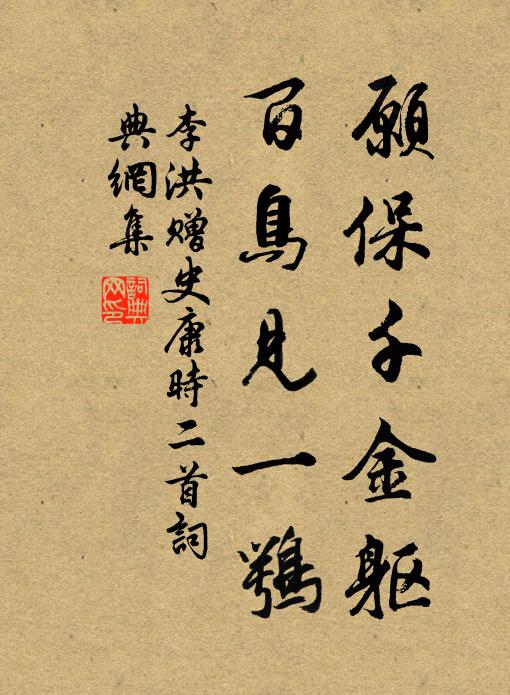 願保千金軀
百鳥見一鶚
李洪赠史康時二首詞
典網集
詞典网印